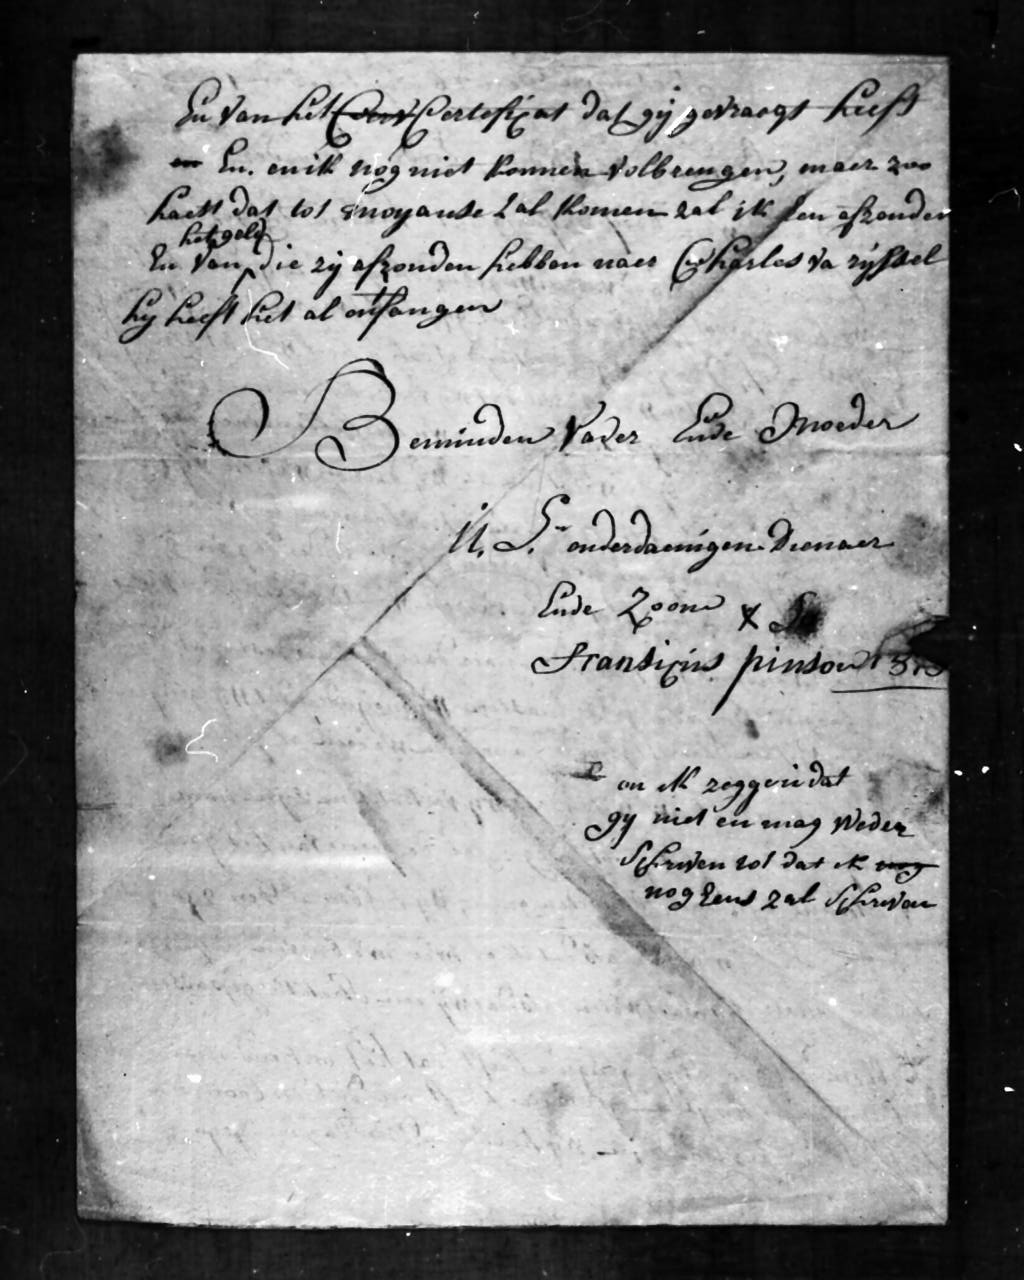 En van het Cerv Certefiçat dat gij gevraegt heeft
en En. en ik nog niet konnen volbrengen, maer zoo
haest dat tot noyanse zal komen zal ik hen afzonden
het geld
En van die zij afzonden hebben naer Charles va rijssel
hij heeft het al ontfangen
Beminden Vader Ende Moeder
U. L. onderdaenigen Dienaer
Ende Zoone X
Fransiçius pinson
en ik zeggen dat
gy niet en mag weder
schriven tot dat ik nog
nog Eens zal schriven